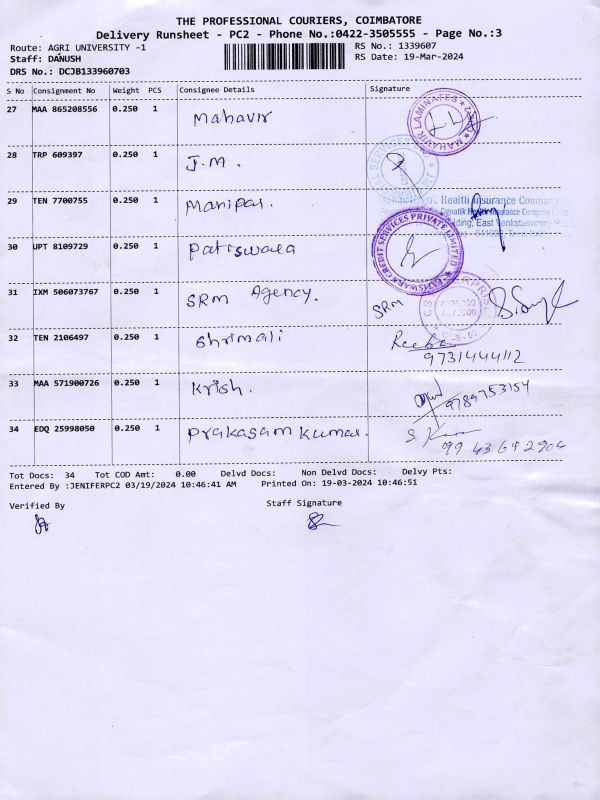 THE PROFESSIONAL COURIERS, COIMBATORE
Delivery Runsheet - PC2 - Phone No.:0422-3505555 - Page No.:3
Route: AGRI UNIVERSITY -1 RS No.: 1339607
Staff: DANUSH RS Date: 19-Mar-2024
DRS No.: DCJB133960703
S No Consignment No Weight PCS Consignee Details Signature
27 MAA 865208556 0.250 1 Mahavir
MAHAVIR LAMINATES
28 TRP 609397 0.250 1 J.M.
29 TEN 7700755 0.250 1 Manipal.
Health Insurance Company
30 UPT 8109729 0.250 1 Patiswara
CREDIT SERVICES PRIVATE LIMITED
31 IXM 506073767 0.250 1 SRM Agency. SRM
32 TEN 2106497 0.250 1 Shrimali Reeba
9731444112
33 MAA 571900726 0.250 1 Krish. 9789753154
34 EDQ 25998050 0.250 1 Prakasam Kumar.
9943692906
Tot Docs: 34 Tot COD Amt: 0.00 Delvd Docs: Non Delvd Docs: Delvy Pts:
Entered By :JENIFERPC2 03/19/2024 10:46:41 AM Printed On: 19-03-2024 10:46:51
Verified By Staff Signature